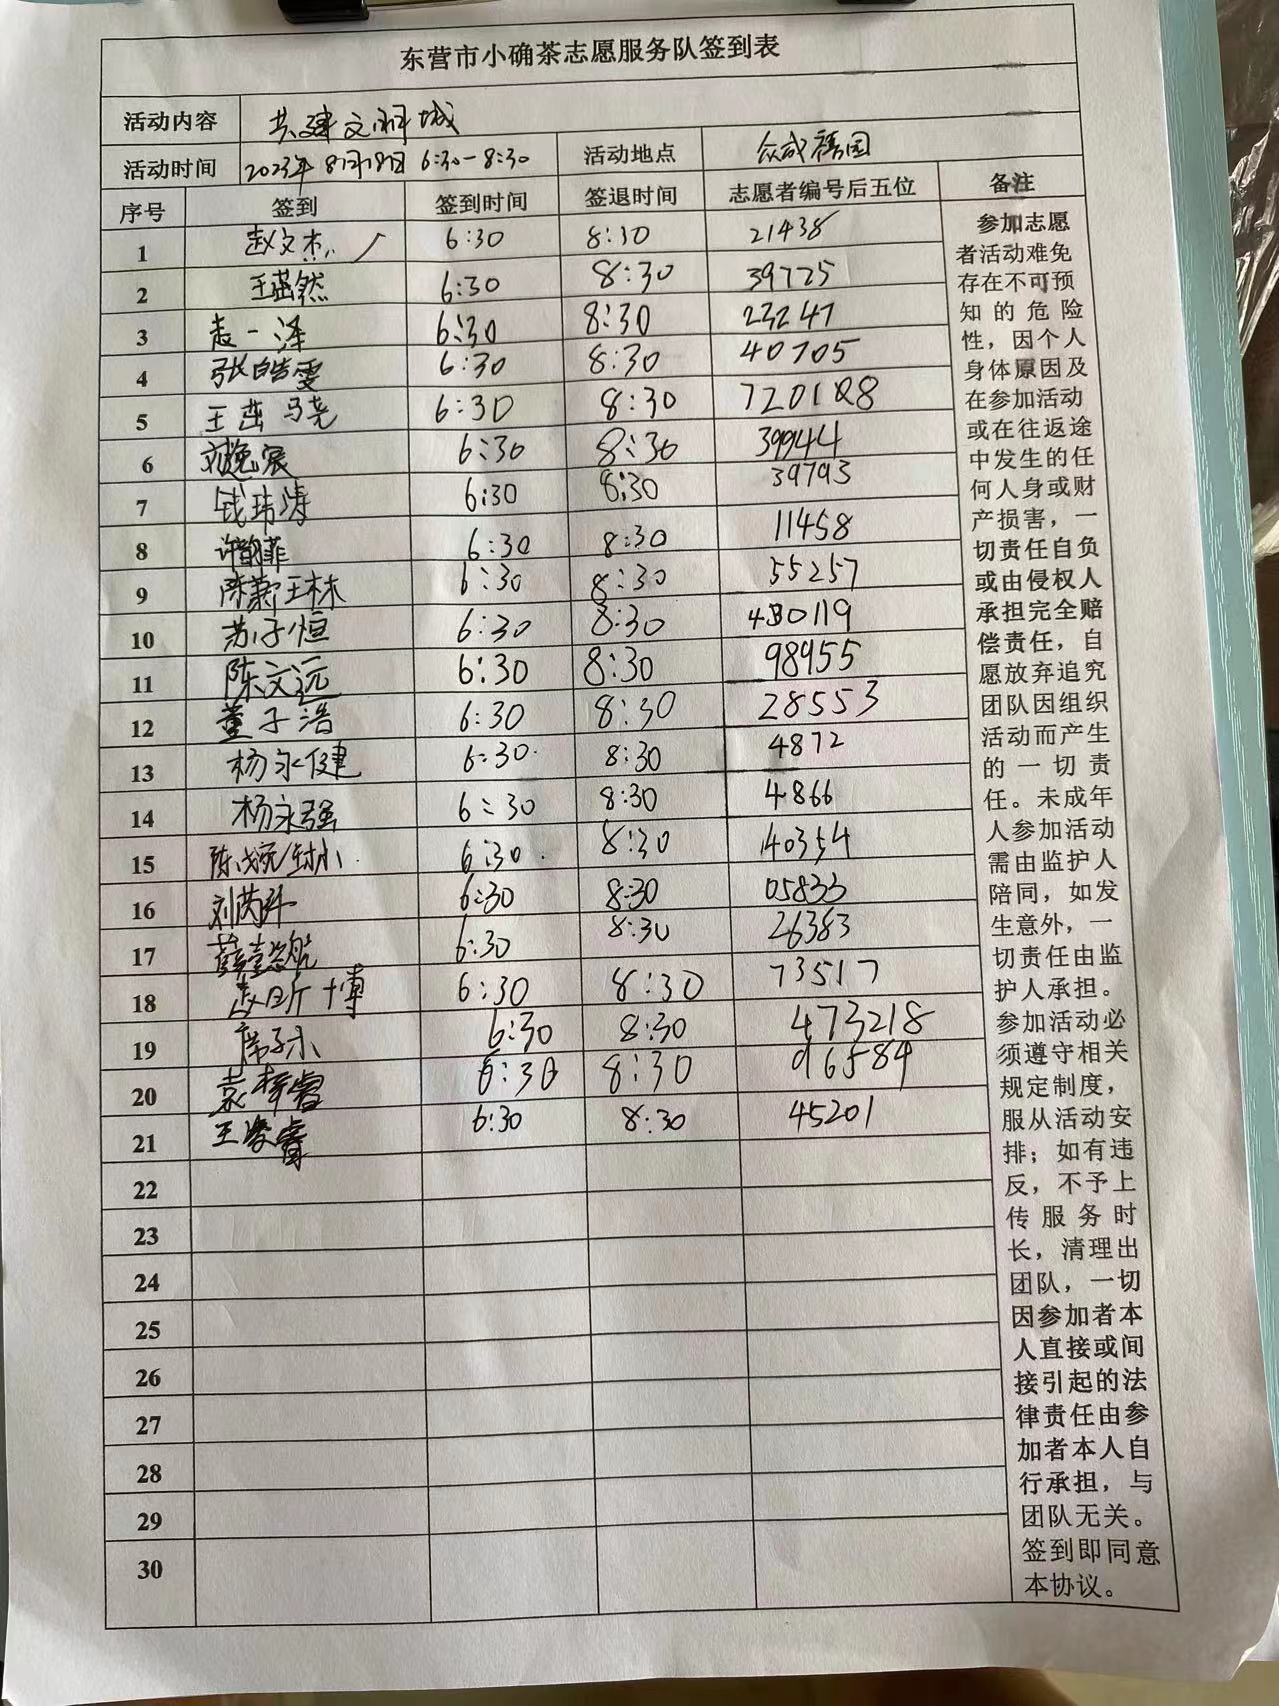 东营市小确茶志愿服务队签到表
活动内容 共建文明城
活动时间 2023年8月18日 6:30-8:30 活动地点 众成禧园
序号 签到 签到时间 签退时间 志愿者编号后五位 备注
1 赵文杰 6:30 8:30 21438
2 王茁然 6:30 8:30 39725
3 袁一泽 6:30 8:30 23247
4 张皓雯 6:30 8:30 40705
5 王茁骁 6:30 8:30
6 刘逸宸 6:30 8:30 39944
7 钱玮涛 6:30 8:30 39793
8 6:30 8:30 11458
9 6:30 8:30 55257
10 苏子恒 6:30 8:30
11 陈文远 6:30 8:30 98955
12 董子浩 6:30 8:30 28553
13 杨永健 6:30 8:30 4872
14 杨永强 6:30 8:30 4866
15 6:30 8:30 40354
16 6:30 8:30 05833
17 6:30 8:30 26383
18 6:30 8:30 73517
19 席子小 6:30 8:30 473218
20 袁梓睿 6:30 8:30 96584
21 6:30 8:30 45201
22
23
24
25
26
27
28
29
30
参加志愿
者活动难免
存在不可预
知的危险
性，因个人
身体原因及
在参加活动
或在往返途
中发生的任
何人身或财
产损害，一
切责任自负
或由侵权人
承担完全赔
偿责任，自
愿放弃追究
团队因组织
活动而产生
的一切责
任。未成年
人参加活动
需由监护人
陪同，如发
生意外，一
切责任由监
护人承担。
参加活动必
须遵守相关
规定制度，
服从活动安
排；如有违
反，不予上
传服务时
长，清理出
团队，一切
因参加者本
人直接或间
接引起的法
律责任由参
加者本人自
行承担，与
团队无关。
签到即同意
本协议。